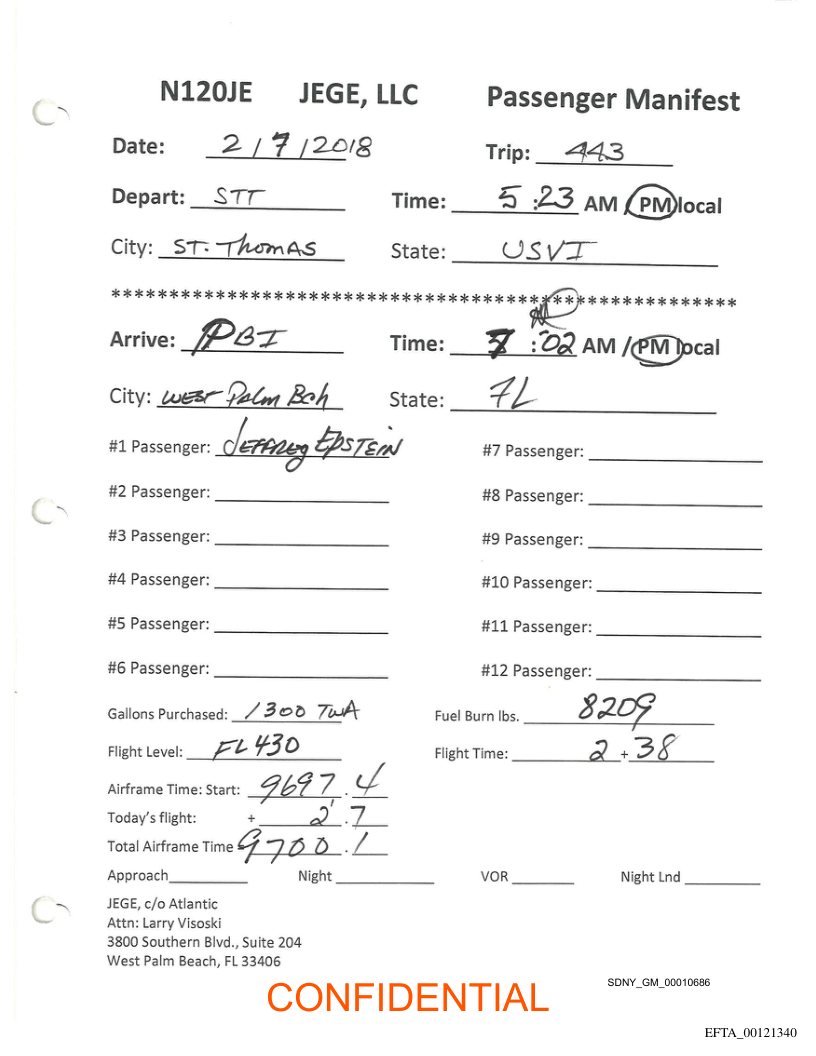 N120JE JEGE, LLC Passenger Manifest
Date: 2/7/2018 Trip: 443
Depart: STT Time: 5:23 AM / PM local
City: ST. Thomas State: USVI
******************************************************
Arrive: PBI Time: 7:02 AM / PM local
City: WEST Palm Bch State: FL
#1 Passenger: JEFFREY EPSTEIN #7 Passenger:
#2 Passenger: #8 Passenger:
#3 Passenger: #9 Passenger:
#4 Passenger: #10 Passenger:
#5 Passenger: #11 Passenger:
#6 Passenger: #12 Passenger:
Gallons Purchased: 1300 TWA Fuel Burn lbs. 8209
Flight Level: FL430 Flight Time: 2 + 38
Airframe Time: Start: 9697.4
Today's flight: + 2.7
Total Airframe Time 9700.1
Approach Night VOR Night Lnd
JEGE, c/o Atlantic
Attn: Larry Visoski
3800 Southern Blvd., Suite 204
West Palm Beach, FL 33406
SDNY_GM_00010686
CONFIDENTIAL
EFTA_00121340